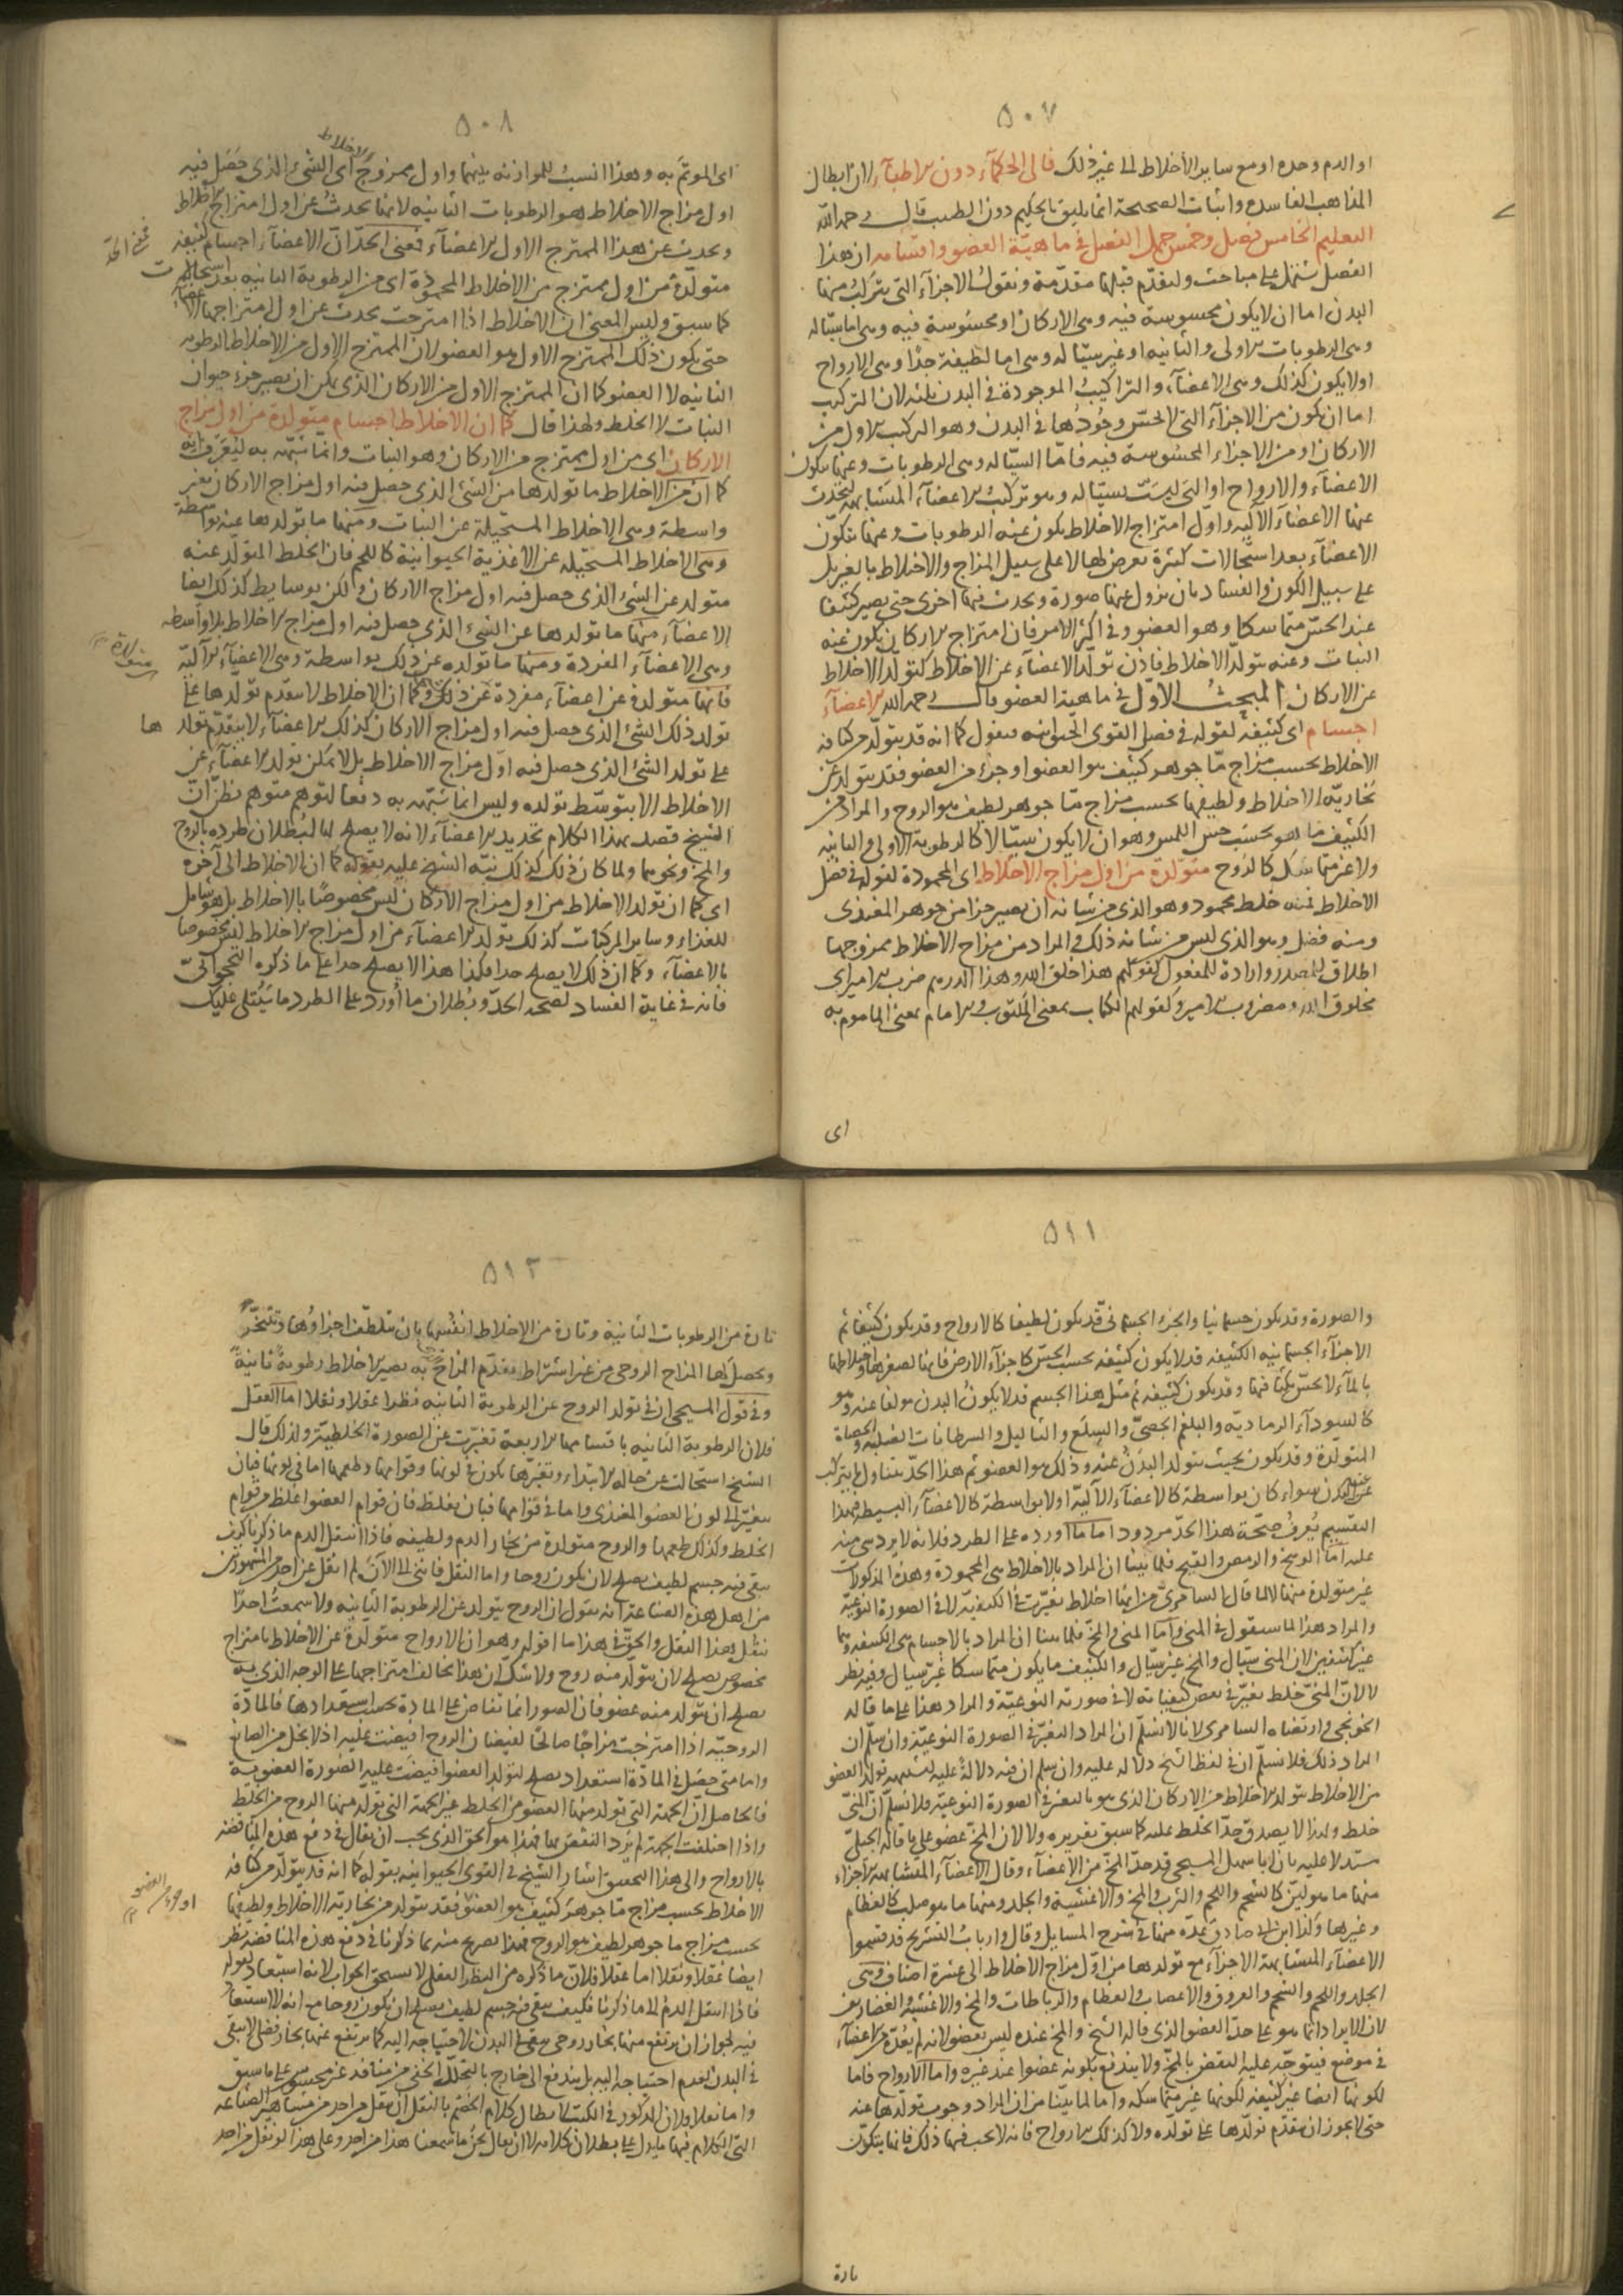 ٥٠٧
او الدم وحده او مع ساير الأخلاط الى غير ذلك فالى الحكماء دون الاطباء لان ابطال
المذاهب الفاسدة واثبات الصحيحة انما يليق بالحكيم دون الطبيب قال رحمه الله
التعليم الخامس فصل وخمس جمل الفصل في ماهية العضو واقسامه ان هذا
الفصل يشتمل على مباحث ولنقدم قبلها مقدمة ونقول الاجزاء التي يتركب منها
البدن اما ان لا يكون محسوسة فيه وهى الاركان او محسوسة فيه وهى اما سيّاله
وهى الرطوبات الاولى والثانيه او غير سيّاله وهى اما لطيفة جدًا وهى الارواح
اولا يكون كذلك وهى الاعضاء والتراكيب الموجودة في البدن ثلثه لان التركيب
اما ان يكون من الاجزاء التي لا يحسّ وجُودُها في البدن وهو التركيب الاول من
الاركان او من الاجزاء المحسُوسة فيه فامّا السيّاله وهى الرطوبات وعنها يتكون
الاعضاء والارواح او التى ليسَت بسيّاله وهو تركيبُ الاعضاء المتشابهه ليحدث
عنها الاعضاء الآليه واوّل امتزاج الاخلاط يكون عنه الرطوبات وعنها يتكوّن
الاعضاء بعد استحالات كثيرة تعرض لها لا على سبيل المزاج والاختلاط بالغير بل
على سبيل الكون والفساد بان يزول عنها صورة ويحدث فيها اخرى حتى يصير كثيفا
عند الحسّ متماسكا وهو العضو وفى اكثر الامر فان امتزاج الاركان يكون عنه
النبات وعنه يتولّد الاخلاط فاذن تولّد الاعضاء عن الاخلاط كتولّد الاخلاط
عن الاركان المبحثُ الاوّل في ماهية العضو قال رحمه الله الاعضاء
اجسام اى كثيفة لقوله في فصل القوى الحيوانيه فنقول كما انه قد يتولّد من كثافه
الاخلاط بحسب مزاج مّا جوهر كثيف هو العضو او جزء من العضو فقد يتولد من
بُخاريّه الاخلاط ولطيفها بحسب مزاج مّا جوهر لطيف هو الروح والمراد من
الكثيف مّا هو بحسَب حس اللمس وهو ان لا يكون سيّالا كالرطوبة الاولى والثانيه
ولا غير متماسك كالروح متولّدة من اول مزاج الاخلاط اى المحمودة لقوله في فصل
الاخلاط فمنه خلط محمود وهو الذى من شانه ان يصير جزا من جوهر المغتذى
ومنه فضل وهو الذى ليس من شانه ذلك والمراد من مزاج الاخلاط ممزوجها
اطلاق للمصدر وارادة للمفعول كقولهم هذا خلق الله وهذا الدرهم ضرب الامير اى
مخلوق الله ومضروب الامير وكقولهم الكتاب بمعنى المكتوب والامام بمعنى الماموم به
اى
٥٠٨
اى الموتمَّ به وهذا انسبُ للموازنه بينهما واول ممزوج الاخلاط اى الشئ الذى حَصَل فيه
اول مزاج الاخلاط هو الرطوبات الثانيه لانها يحدثُ عن اول امتزاج الاخلاط
ويحدث عن هذا الممتزج الاول الاعضاء فمعنى الحدّ ان الاعضاء اجسام كثيفة
متولّدة من اول ممتزج من الاخلاط المحمودة اى من الرطوبة الثانيه بعد استحالات
كما سبق وليس المعنى ان الاخلاط اذا امتزجت يحدث عن اول امتزاجها الاعضاء
حتى يكون ذلك الممتزج الاول هو العضو لان الممتزج الاول من الاخلاط الرطوبه
الثانيه لا العضو كما ان الممتزج الاول من الاركان الذى يمكن ان يصير جزء حيوان
النبات لا الخلط ولهذا قال كما ان الاخلاط اجسام متولدة من اول مزاج
الاركان اى من اول ممتزج من الاركان وهو النبات وانما شبّه به ليُعرَف انه
كما ان من الاخلاط ما تولدها من الشئ الذى حصل فيه اول مزاج الاركان بغير
واسطة وهى الاخلاط المستحيلة عن النبات ومنها ما تولدها عنه بواسطة
وهى الاخلاط المستحيله عن الاغذية الحيوانية كاللحم فان الخلط المتولّد عنه
متولد عن الشئ الذى حصل فيه اول مزاج الاركان ولكن بوسايط كذلك ايضا
الاعضاء منها ما تولدها عن الشئ الذى حصل فيه اول مزاج الاخلاط بلا واسطه
وهى الاعضاء المفردة ومنها ما تولده عن ذلك بواسطة وهى الاعضاء الآليّة
فانها متولدة عن اعضاء مفردة عن ذلك وكما ان الاخلاط لا يتقدم تولّدها على
تولد ذلك الشئ الذى حصل فيه اول مزاج الاركان كذلك الاعضاء لا يتقدّم تولدها
على تولد الشئ الذى حصل فيه اوّل مزاج الاخلاط بل لا يمكن تولد الاعضاء عن
الاخلاط الا بتوسّط تولده وليس انما شبّه به دفعا لتوهم متوهم يظنّ انّ
الشيخ قصد بهذا الكلام تحديد الاعضاء لانه لا يصلح لها لبُطلان طرده بالروح
والمخ ونحوهما ولما كان ذلك كذلك نبّه الشيخ عليه بقوله كما ان الاخلاط الى آخره
اى كما ان تولّد الاخلاط من اول مزاج الاركان ليس مخصوصًا بالاخلاط بل هو شامل
للغذاء وساير المركبات كذلك تولّد الاعضاء من اول مزاج الاخلاط ليس مخصوصا
بالاعضاء وكما ان ذلك لا يصلح حدا فكذا هذا لا يصلح حدا على ما ذكره النخجوانىّ
فانه في غاية الفساد لصحه الحدّ وبُطلان ما اُورد على الطرد ما سَيُتلى عليك
٥١١
والصورة وقد يكون جسمانيا والجزء الجسمانىّ قد يكون لطيفا كالارواح وقد يكون كثيفا ثم
الاجزاء الجسمانيه الكثيفه قد لا يكون كثيفه بحسب الحسّ كاجزاء الارض فانها لصغرها واختلاطها
بالماء لا يحسّ بكثافتها وقد يكون كثيفه ثم مثل هذا الجسم قد لا يكونُ البدن مولفا عنه وهو
كالسوداء الرماديّه والبلغم الجصىّ والسِلَع والثاليل والسرطانات الصلبه والحصاة
المتولدة وقد يكون بحيث يتولد البدَنُ عنه وذلك هو العضو ثم هذا الحدّ يتناول ما يتركب
عن البدن سواء كان بواسطة كالاعضاء الآليّه او لا بواسطة كالاعضاء البسيطه فهذا
التقسيم يُعرفُ صحّة هذا الحدّ مردود اما ما اورده على الطرد فلانه لا يرد شى منه
عليه اما الوسخ والرمص والقيح فلما بينا ان المراد بالاخلاط هى المحمودة وهذه المذكورات
غير متولدة منها لا لما قال السامرىّ من انها اخلاط تغيّرت في الكيفيّه لا في الصورة النوعيّة
والمراد هذا لما سنقول في المنى واما المنى والمخ فلما بينا ان المراد بالاجسام هى الكثيفه وهما
غير كثيفين لان المنى سيّال والمخ غير سيّال والكثيف ما يكون متماسكا غير سيال وفيه نظر
لا لانّ المنىّ خلط تغيّر في بعض كيفياته لا في صورته النوعيّة والمراد هذا على ما قاله
الخونجى وارتضاه السامرى لانا لا نسلّم ان المراد التغيّر في الصورة النوعيّة وان سلم ان
المراد ذلك فلا نسلّم ان في لفظ الشيخ دلاله عليه وان سلم ان فيه دلالةً عليه لتشبيهه تولد العضو
من الاخلاط بتولد الاخلاط من الاركان الذى هو بالتغير في الصورة النوعيّه فلا نسلّم ان المنىّ
خلط ولهذا لا يصدق حدّ الخلط عليه كما سبق تقريره ولا لان المخّ عضو على ما قاله الجيلىّ
مستدلا عليه بان ابا سهل المسيحى قد عدّ المخّ من الاعضاء وقال الاعضاء المتشابهه الاجزاء
منها ما هو ليّن كالشحم واللحم والثرب والمخ والاغشية والجلد ومنها ما هو صلب كالعظام
وغيرها وكذا ابن ابى صادق عدّه منها في شرح المسايل وقال وارباب التشريح قد قسموا
الاعضاء المتشابهة الاجزاء مع تولدها من اوّل مزاج الاخلاط الى عشرة اصناف وهى
الجلد واللحم والشحم والعروق والاعصاب والعظام والرباطات والمخ والاغشية والغضاريف
لان الايراد انما هو على حدّ العضو الذى قاله الشيخ والمخ عنده ليس بعضو لانه لم يعُدّه من الاعضاء
في موضع فيتوجّه عليه النقض بالمخ ولا يندفع بكونه عضوا عند غيره واما الارواح فاما
لكونها ايضا غير كثيفه لكونها غير متماسكه واما لما بيّنا من ان المراد وجوب تولّدها عنه
حتى لا يجوز ان يتقدّم تولّدها على تولّده ولا كذلك الارواح فانه لا يجب فيها ذلك فانها يتكوّن
تارة
٥١٢
تارة من الرطوبات الثانية وتارة من الاخلاط انفُسِها بان يتلطّف اجزاؤها وتتبخّر
ويحصل لها المزاج الروحى من غير اشتراط تقدّم المزاج به يصير الاخلاط رطوبةً ثانيةً
وفى قول المسيحى ان في تولد الروح عن الرطوبة الثانيه نظرا عقلا ونقلا اما العقل
فلان الرطوبة الثانيه باقسامها الاربعة تغيّرت عن الصورة الخلطيّة ولذلك قال
الشيخ استحالت عن حاله الابتداء وتغيّرها يكون في لونها وقوامها وطعمها اما في لونها فبان
يتغيّر الى لون العضو المغتذى واما في قوامها فبان يغلظ فان قوام العضو اغلظ من قوام
الخلط وكذلك طعمها والروح متولدة من بخار الدم ولطيفه فاذا انتقل الدم ما ذكرنا كيف
يبقى فيه جسم لطيف يصلح لان يكون روحا واما النقل فانى الى الآن لم انقل عن احد من المشهورين
من اهل هذه الصناعة انه يقول ان الروح يتولد عن الرطوبة الثانيه ولا سمعتُ احدًا
ينقل هذا النقل والحقّ في هذا ما اقوله وهو ان الارواح متولّدة عن الاخلاط بامتزاج
مخصوص يصلح لان يتولّد منه روح ولا شكّ ان هذا يخالف امتزاجها على الوجه الذى به
يصلح ان يتولد منه عضو فان الصور انما تفاض على المادة بحسب استعدادها فالمادّة
الروحيّه اذا امتزجت مزاجًا صالحًا لفيضان الروح افيضت عليه اذ لا بخل من الصانع
واما متى حصل في المادّة استعداد يصلح لتولّد العضو افيضَت عليه الصُورة العضوية
فالحاصل انّ الجهة التى تولد منها العضو من الخلط غير الجهة التى تولّد منها الروح من الخلط
واذا اختلفت الجهة لم يَرد النقض بها فهذا هو الحق الذى يجب ان يقال في دفع هذه المناقضه
بالارواح والى هذا التحقيق اشار الشيخ في القوى الحيوانيه بقوله كما انه قد يتولّد من كثافه
الاخلاط بحسب مزاج مّا جوهر كثيف هو العضو فقد يتولد من بخارية الاخلاط ولطيفها
بحسب مزاج ما جوهر لطيف هو الروح فهذا تصريح منه بما ذكرنا في دفع هذه المناقضه نظر
ايضا عقلا ونقلا اما عقلا فلان ما ذكره من النظر العقلى لا يستحق الجواب لانه استبعاد لقوله
فاذا انتقل الدم الى ما ذكرنا فكيف يبقى فيه جسم لطيف يصلح ان يكون روحا مع انه لا استبعاد
فيه لجواز ان يرتفع منها بخار روحى يبقى في البدن لاحتياجه اليه كما يرتفع عنها بخار فضلى لا يبقى
في البدن لعدم احتياجه اليه بل يندفع الى خارج بالتحلّل الخفى من منافذ غير محسوس على ما سبق
واما نقلا فلان المذكور في الكتب